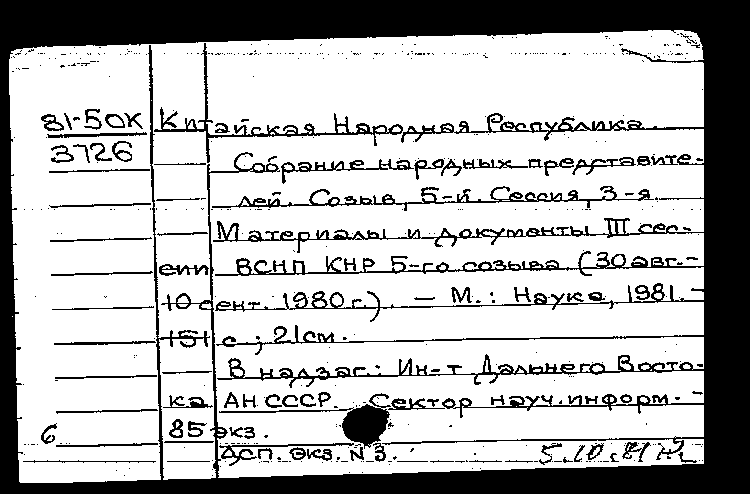 81-50К Китайская Народная Республика.
3726 Собрание народных представите-
лей. Созыв, 5-й. Сессия, 3-я.
Материалы и документы III сес-
сии ВСНП КНР 5-го созыва (30 авг.-
10 сент. 1980 г.). — М.: Наука, 1981.-
151 с ; 21 см.
В надзаг.: Ин-т Дальнего Восто-
ка АН СССР. Сектор науч. информ. -
6 85 экз.
ДСП. экз. N 3. 5.10.81